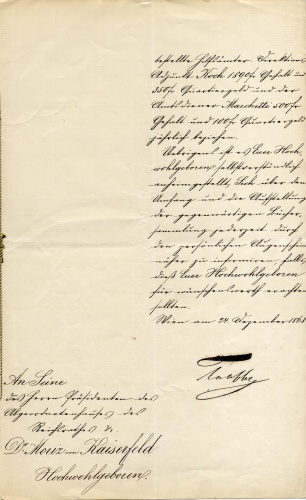 bestellte Hilfsämter Direktions
Adjunkt Koch 1890 fr Gehalt und
350 fr Quartiergeld und der
Amtsdiener Marchetti 500 fr
Gehalt und 100 fr Quartiergeld
jährlich beziehen.
Uebrigens ist es Euer Hoch,
wohlgeboren selbstverständlich
anheimgestellt, Sich über den
Umfang und die Aufstellung
der gegenwärtigen Bücher,
sammlung jederzeit durch
den persönlichen Augenschein
näher zu informiren, falls
dieß Euer Hochwohlgeboren
für wünschenswerth erachten
sollten.
Wien am 24. Dezember 1868
An Seine
des Herrn Präsidenten des
Abgeordnetenhauses des
Reichsrathes
Dr. Moriz von Kaiserfeld
Hochwohlgeboren.